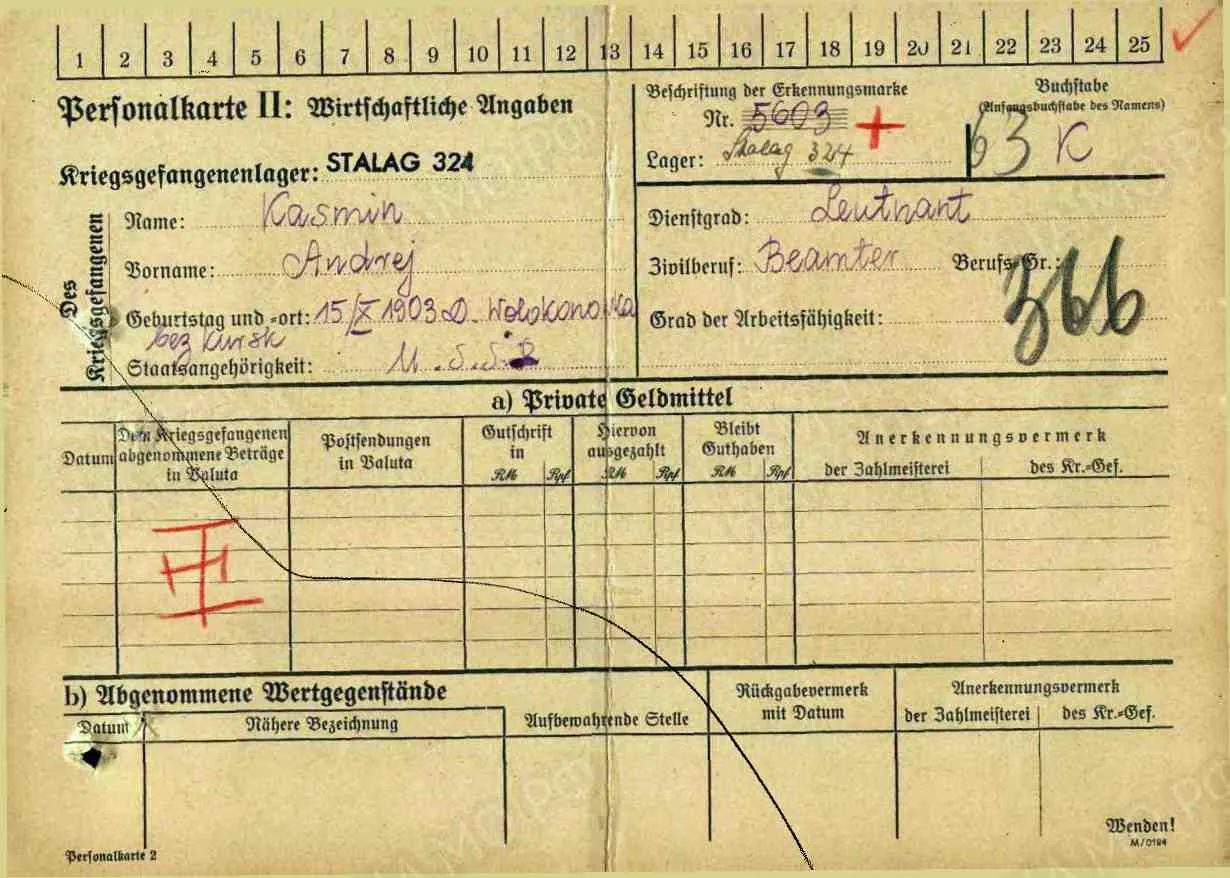 1 2 3 4 5 6 7 8 9 10 11 12 13 14 15 16 17 18 19 20 21 22 23 24 25
Personalkarte II: Wirtschaftliche Angaben
Beschriftung der Erkennungsmarke
Nr. 5603
Lager: Stalag 324
Buchstabe
(Anfangsbuchstabe des Namens)
63 K
Kriegsgefangenenlager: STALAG 324
Des Kriegsgefangenen
Name: Kasmin
Vorname: Andrej
Geburtstag und -ort: 15/X 1903 D. Wolokonowka
bez Kursk
Staatsangehörigkeit: U.S.S.R
Dienstgrad: Leutnant
Zivilberuf: Beamter Berufs-Gr.:
366
Grad der Arbeitsfähigkeit:
a) Private Geldmittel
Datum
Dem Kriegsgefangenen
abgenommene Beträge
in Valuta
Postsendungen
in Valuta
Gutschrift
in
RM Rpf
Hiervon
ausgezahlt
RM Rpf
Bleibt
Guthaben
RM Rpf
Anerkennungsvermerk
der Zahlmeisterei des Kr.-Gef.
b) Abgenommene Wertgegenstände
Datum Nähere Bezeichnung
Aufbewahrende Stelle
Rückgabevermerk
mit Datum
Anerkennungsvermerk
der Zahlmeisterei des Kr.-Gef.
Wenden!
M/0194
Personalkarte 2